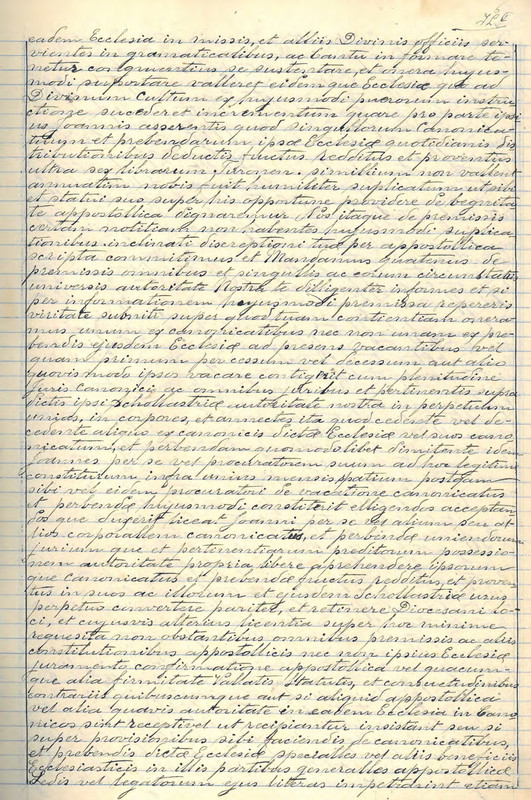 eadem Ecclesia in missis, et alliis Divinis officiis ser-
vientes in gramaticalibus, ac Cantu in formare te-
netur congruentius se sustentare, et onera hujus-
modi suportare valleret eidemque Ecclesiæ que ad
Divinum Cultum ex hujusmodi puerorum instru
ctione succederet incrementum quare pro parte ipsi
us Joannis asserentis quod singulorum Canonica-
tuum et prebendarum ipsæ Ecclesiæ quotidianis dis
tributionibus deductis fructus redditus et proventus
ultra sex librarum Turonen. similium non vallent
annuatim nobis fuit humiliter suplicatum ut sibi
et statui suo super his opportune providere de begnita
te appostollica dignaremur Nos itaque de premissis
certam notitiam non habentes hujusmodi suplica-
tionibus inclinati discreptioni tuæ per appostollica
scripta committimus et Mandamus quatenus de
premissis omnibus et singullis ac eorum circunstatiis
universis autoritate Nostra te dilligenter informes et si
per informationem hujusmodi premissa repereris
viritate subniti super quo tuam contientiam onera-
mus unum ex canonicatibus nec non unam ex pre-
bendis ejusdem Ecclesiæ ad presens vacantibus vel
quam primum per cessum vel decessum, aut alio
quovis modo ipsos vacare contigerit cum plenitudine
Juris Canonici, ac omnibus juribus et pertinentiis supra
dictis ipsi Schollastriæ autoritate nostra in perpetuum
unias, in corpores, et annectes ita quod cedente vel de-
cedente aliquo ex canonicis dictæ Ecclesiæ vel suos cano
nicatum, et perbendam quomodolibet dimitente idem
Joannes per se vel procuratorem suum ad hoc legitime
constitutum infra unius mensis spatium postqam
sibi vel eidem procuratori de vacatione canonicatus
et perbendæ hujusmodi constiterit elligendos acceptan
dos que duxerit liceat Joanni per se vel alium seu al
lios corporallem canonicatus, et perbendæ uniendorum
jurium que et pertinentiarum preditorum possessio-
nem autoritate propria libere aprehendere ipsorum
que canonicatus et prebendæ fructus redditus, et prove-
tus in suos ac illorum et ejusdem Schollastriæ usus
perpetuo convertere pariter, et retinere Diocesani lo-
ci, et cujusvis alterius licentia super hoc minime
requesita non obstantibus omnibus premissis ac aliis
constitutionibus appostollicis nec non ipsius Ecclesiæ
juramento, confirmatione appostollica vel quacum-
que alia firmitate Vallatis Statutis, et consuetudinibus
contrariis quibuscumque aut si aliqui appostollica
vel alia quavis autoritate in eadem Ecclesia in Cano
nicos sint recepti vel ut recipiantur insistant seu si
super provisionibus sibi faciendis de canonicatibus,
et prebendis dictæ Ecclesiæ specialles vel aliis beneficiis
Ecclesiasticis in illis partibus generalles appostollicæ
Sedis vel legatorum ejus literas impetrarint etiam